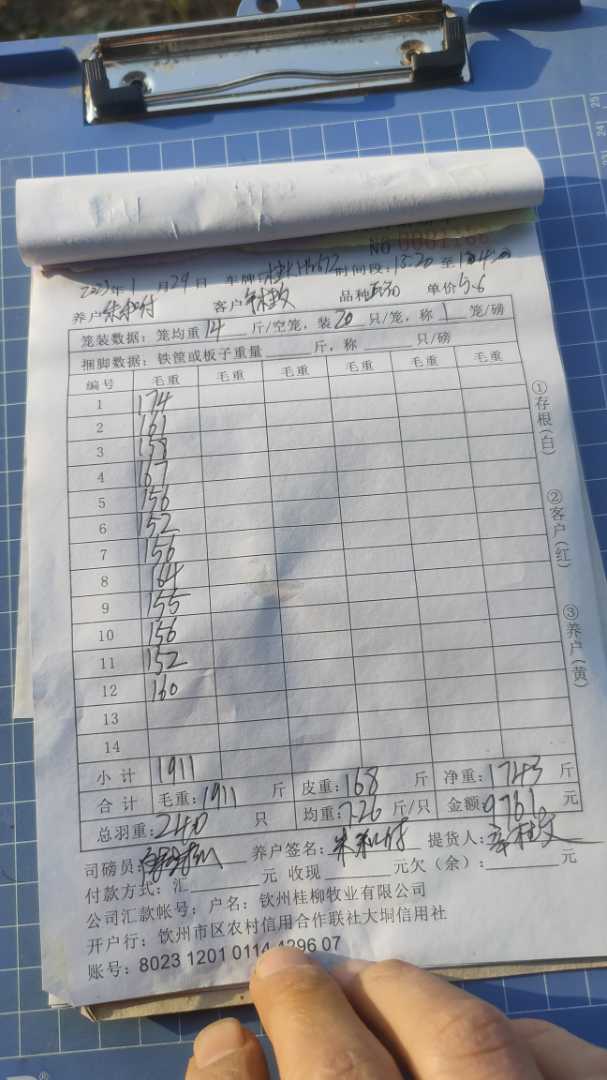 No 0001166
2023年1月29日 车牌 时间段:13:20 至
养户 客户 品种 单价5.6
笼装数据: 笼均重14斤/空笼, 装20只/笼, 称1笼/磅
捆脚数据: 铁筐或板子重量 斤, 称 只/磅
编号 毛重 毛重 毛重 毛重 毛重 毛重
1 174
2 161
3 158
4 167
5 156
6 152
7 156
8 164
9 155
10 156
11 152
12 160
13
14
小计 1911
合计 毛重:1911斤 皮重:168斤 净重:1743斤
总羽重:240只 均重:7.26斤/只 金额:9761元
司磅员: 养户签名: 提货人:
付款方式: 汇 元 收现 元欠(余): 元
公司汇款帐号: 户名: 钦州桂柳牧业有限公司
开户行: 钦州市区农村信用合作联社大垌信用社
账号: 8023 1201 0114 4296 07
①存根(白)
②客户(红)
③养户(黄)